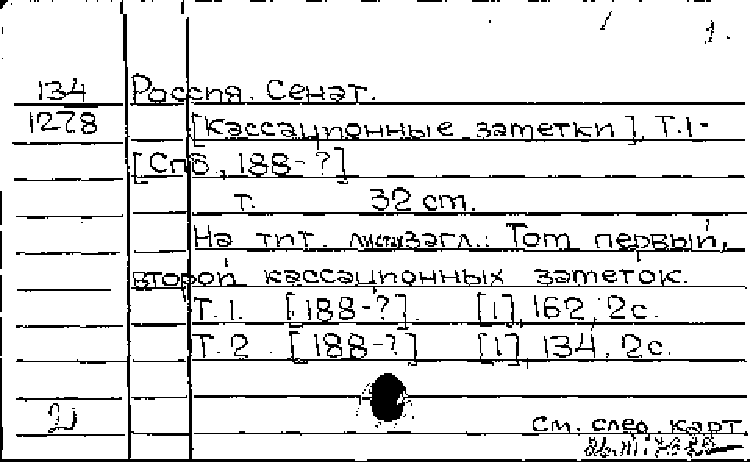 1.
134 Россия. Сенат.
1278 [Кассационные заметки]. Т.1-
[Спб, 188-?]
т. 32 cm.
На тит. листах загл.: Том первый,
второй кассационных заметок.
Т. 1. [188-?]. [1], 162, 2с.
Т. 2. [188-?] [1], 134, 2с.
2
См. след. карт.